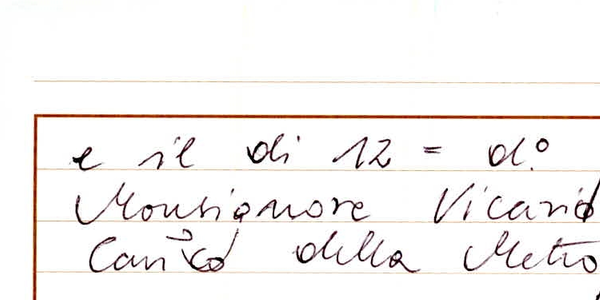 e il di 12 = d.º
Monsignore Vicario
Can.co della Metro